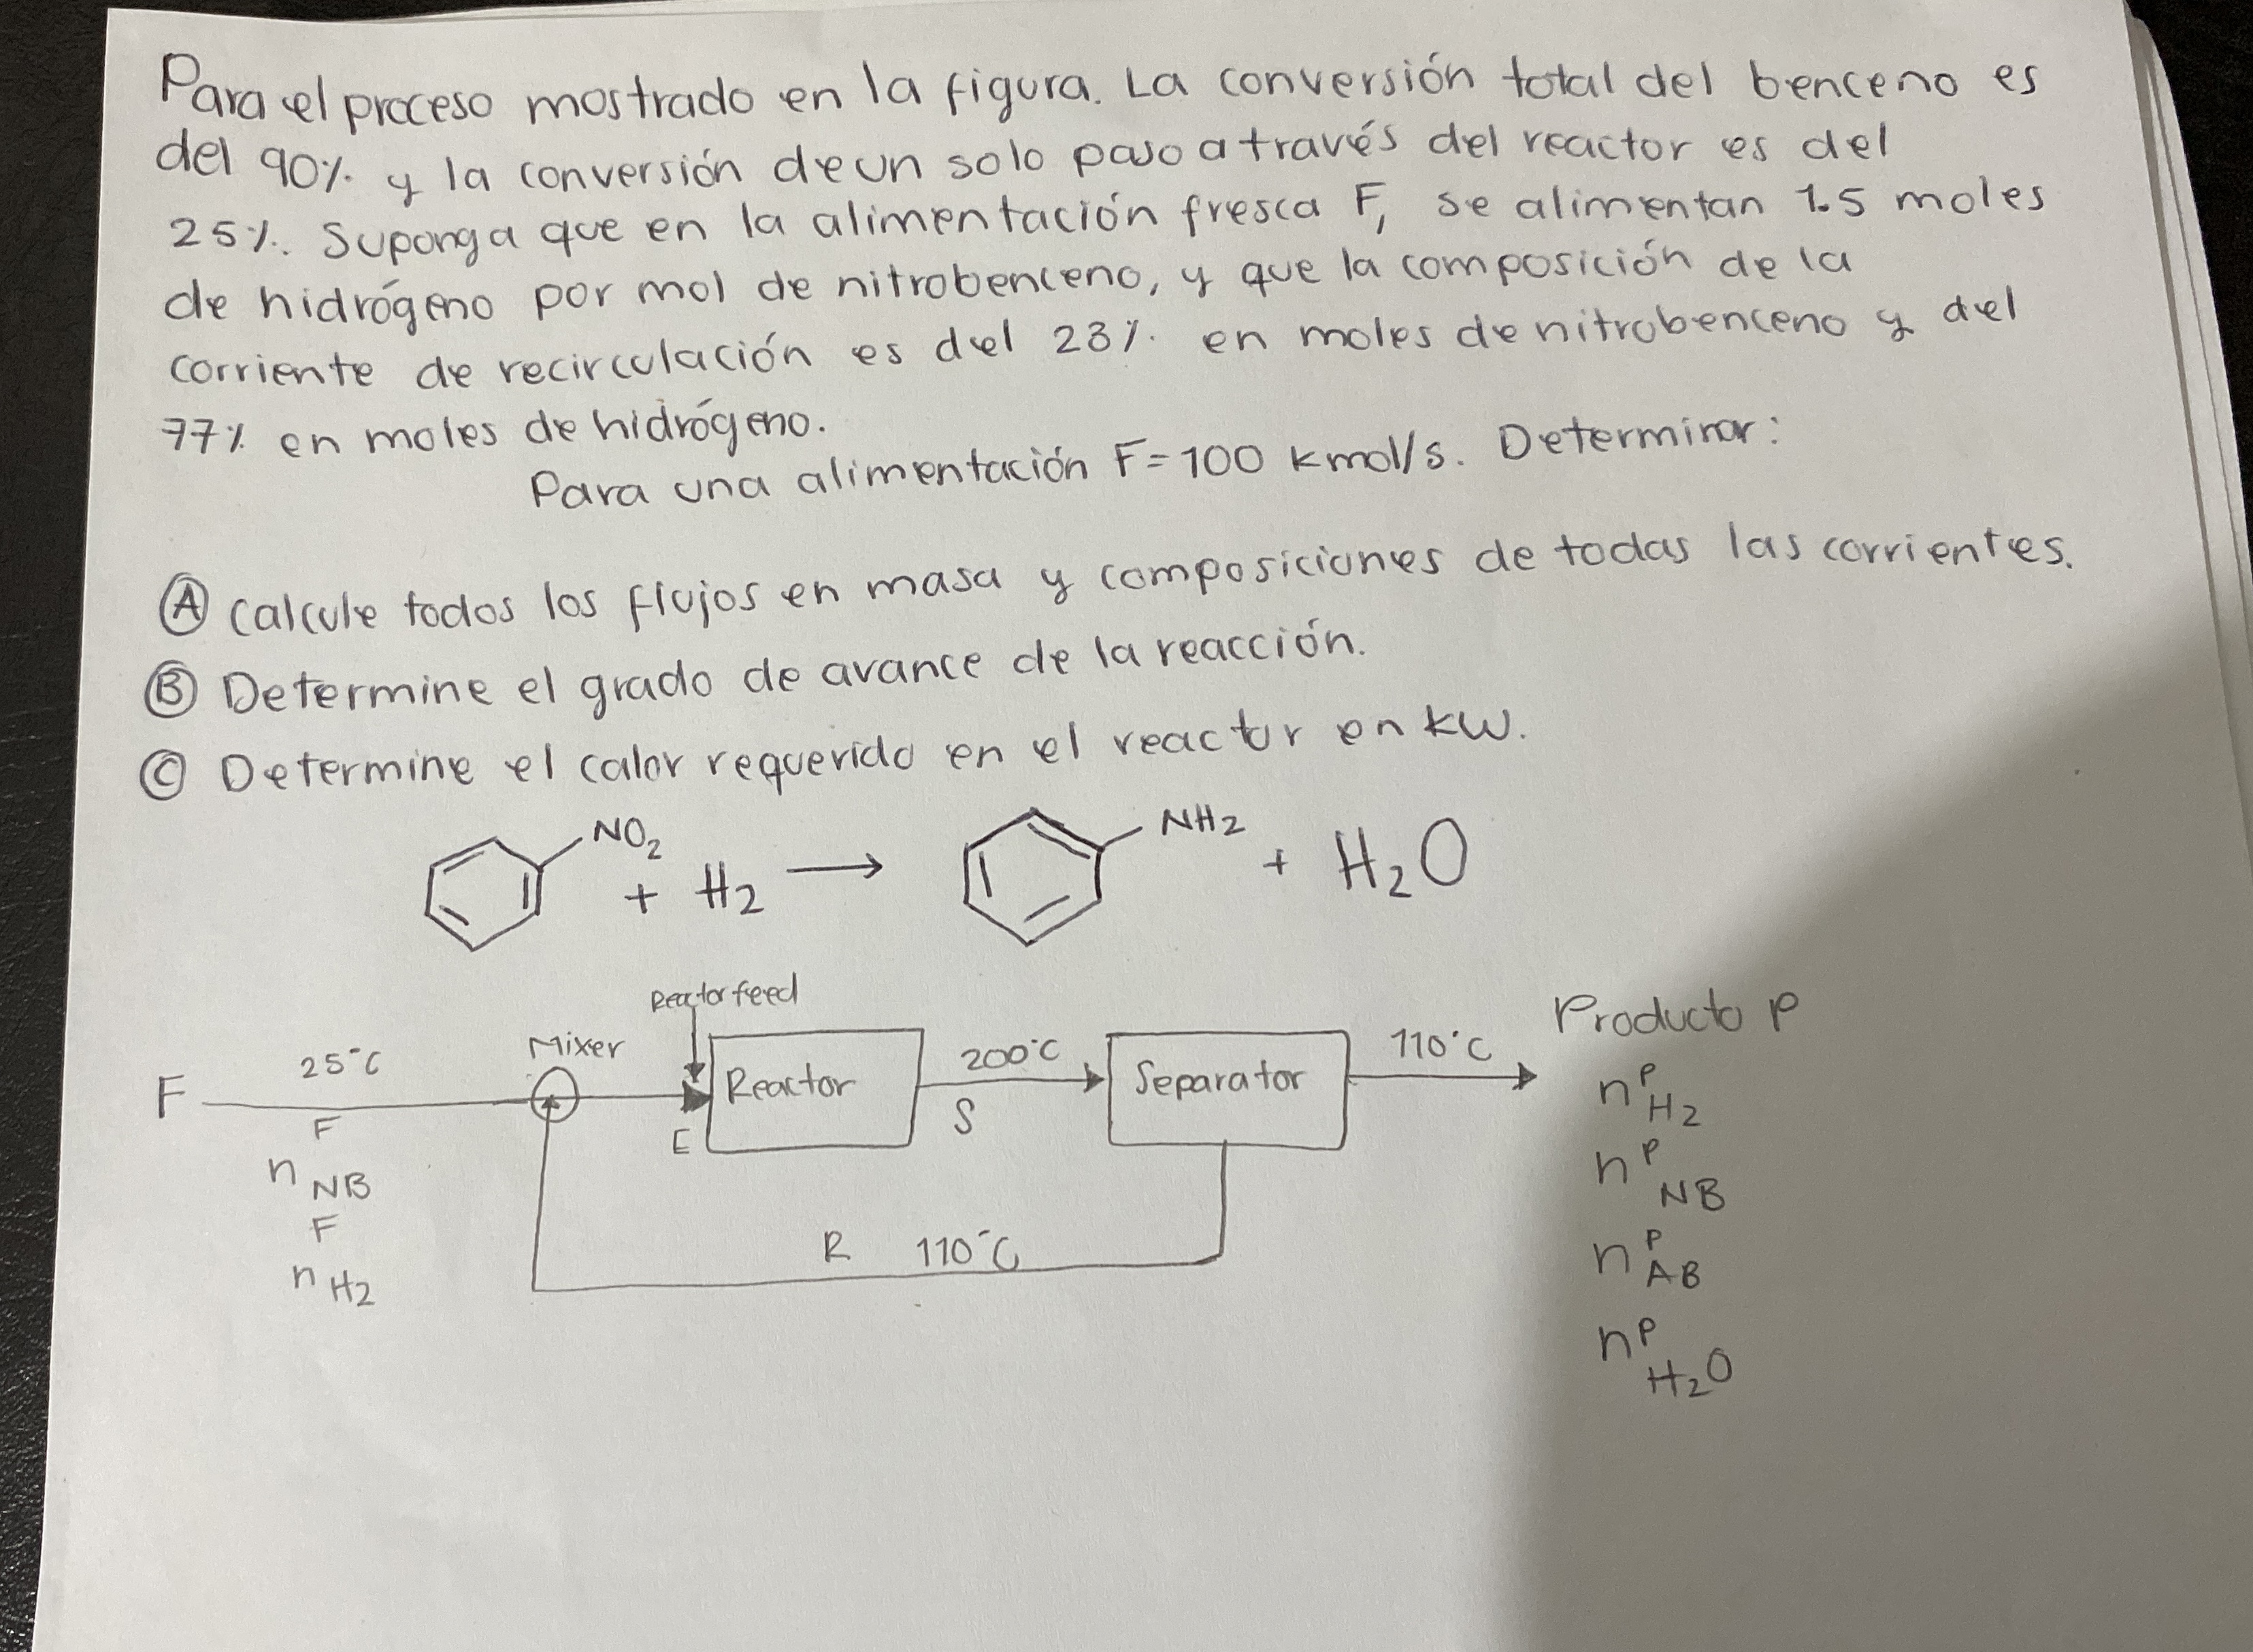 Para el proceso mostrado en la figura. La conversión total del benceno es
del 90% y la conversión de un solo paso a través del reactor es del
25%. Suponga que en la alimentación fresca F, se alimentan 1.5 moles
de hidrógeno por mol de nitrobenceno, y que la composición de la
corriente de recirculación es del 23% en moles de nitrobenceno y del
77% en moles de hidrógeno.
Para una alimentación F=100 kmol/s. Determinar:
Ⓐ Calcule todos los flujos en masa y composiciones de todas las corrientes.
Ⓑ Determine el grado de avance de la reacción.
Ⓒ Determine el calor requerido en el reactor en kW.
NO2 + H2 → NH2 + H2O
Reactor feed
Mixer
F 25°C
E
Reactor
200°C
S
Separator
110°C
Producto P
n^F NB
n^F H2
R 110°C
n^P H2
n^P NB
n^P AB
n^P H2O